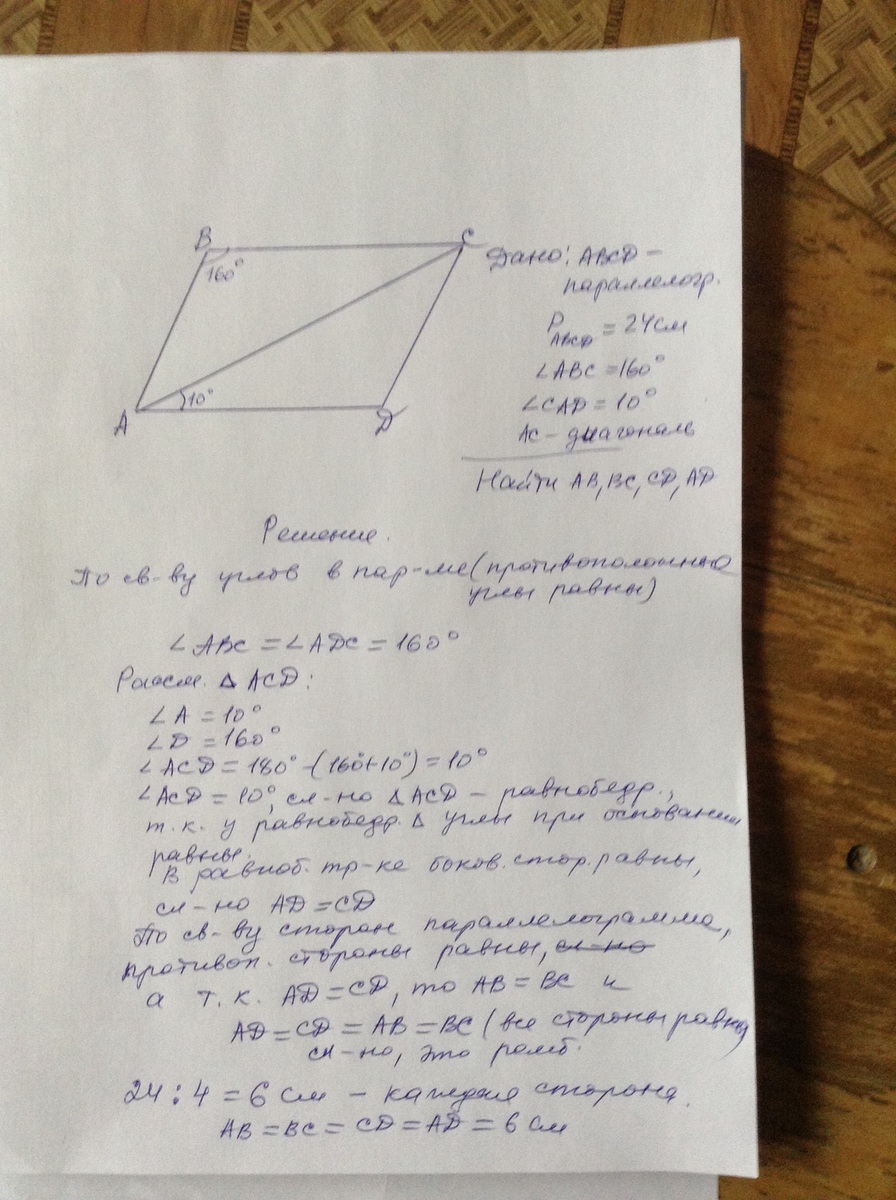 B
C
160°
10°
A
D
Дано: ABCD –
параллелогр.
P ABCD = 24см
∠ABC = 160°
∠CAD = 10°
AC – диагональ
Найти AB, BC, CD, AD
Решение.
По св-ву углов в пар-ме (противоположные
углы равны)
∠ABC = ∠ADC = 160°
Рассм. △ ACD:
∠A = 10°
∠D = 160°
∠ACD = 180° – (160°+10°) = 10°
∠ACD = 10°, сл-но △ACD – равнобедр.,
т.к. у равнобедр. △ углы при основании
равны.
В равноб. тр-ке боков. стор. равны,
сл-но AD = CD
По св-ву сторон параллелограмма,
противоп. стороны равны, сл-но
а т.к. AD = CD, то AB = BC и
AD = CD = AB = BC (все стороны равны)
сл-но, это ромб.
24 : 4 = 6 см – каждая сторона.
AB = BC = CD = AD = 6 см